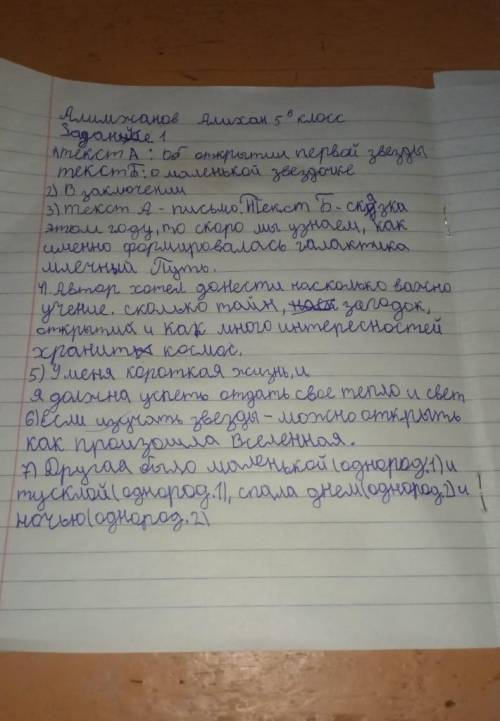 Алимжанов Алихан 5 в класс
Задание 1
1) текст А: Об открытии первой звезды
текст Б: о маленькой звездочке
2) В заключении
3) Текст А - письмо. Текст Б - сказка
этом году, то скоро мы узнаем, как
именно формировалась галактика
млечный Путь.
4) Автор хотел донести насколько важно
учение. сколько тайн, загадок,
открытий и как много интересностей
хранит космос.
5) У меня короткая жизнь, и
я должна успеть отдать свое тепло и свет
6) если изучать звезды - можно открыть
как произошла Вселенная.
7) Другая было маленькой (однород.1) и
тусклой (однород.1), спала днем (однород.2) и
ночью (однород.2)